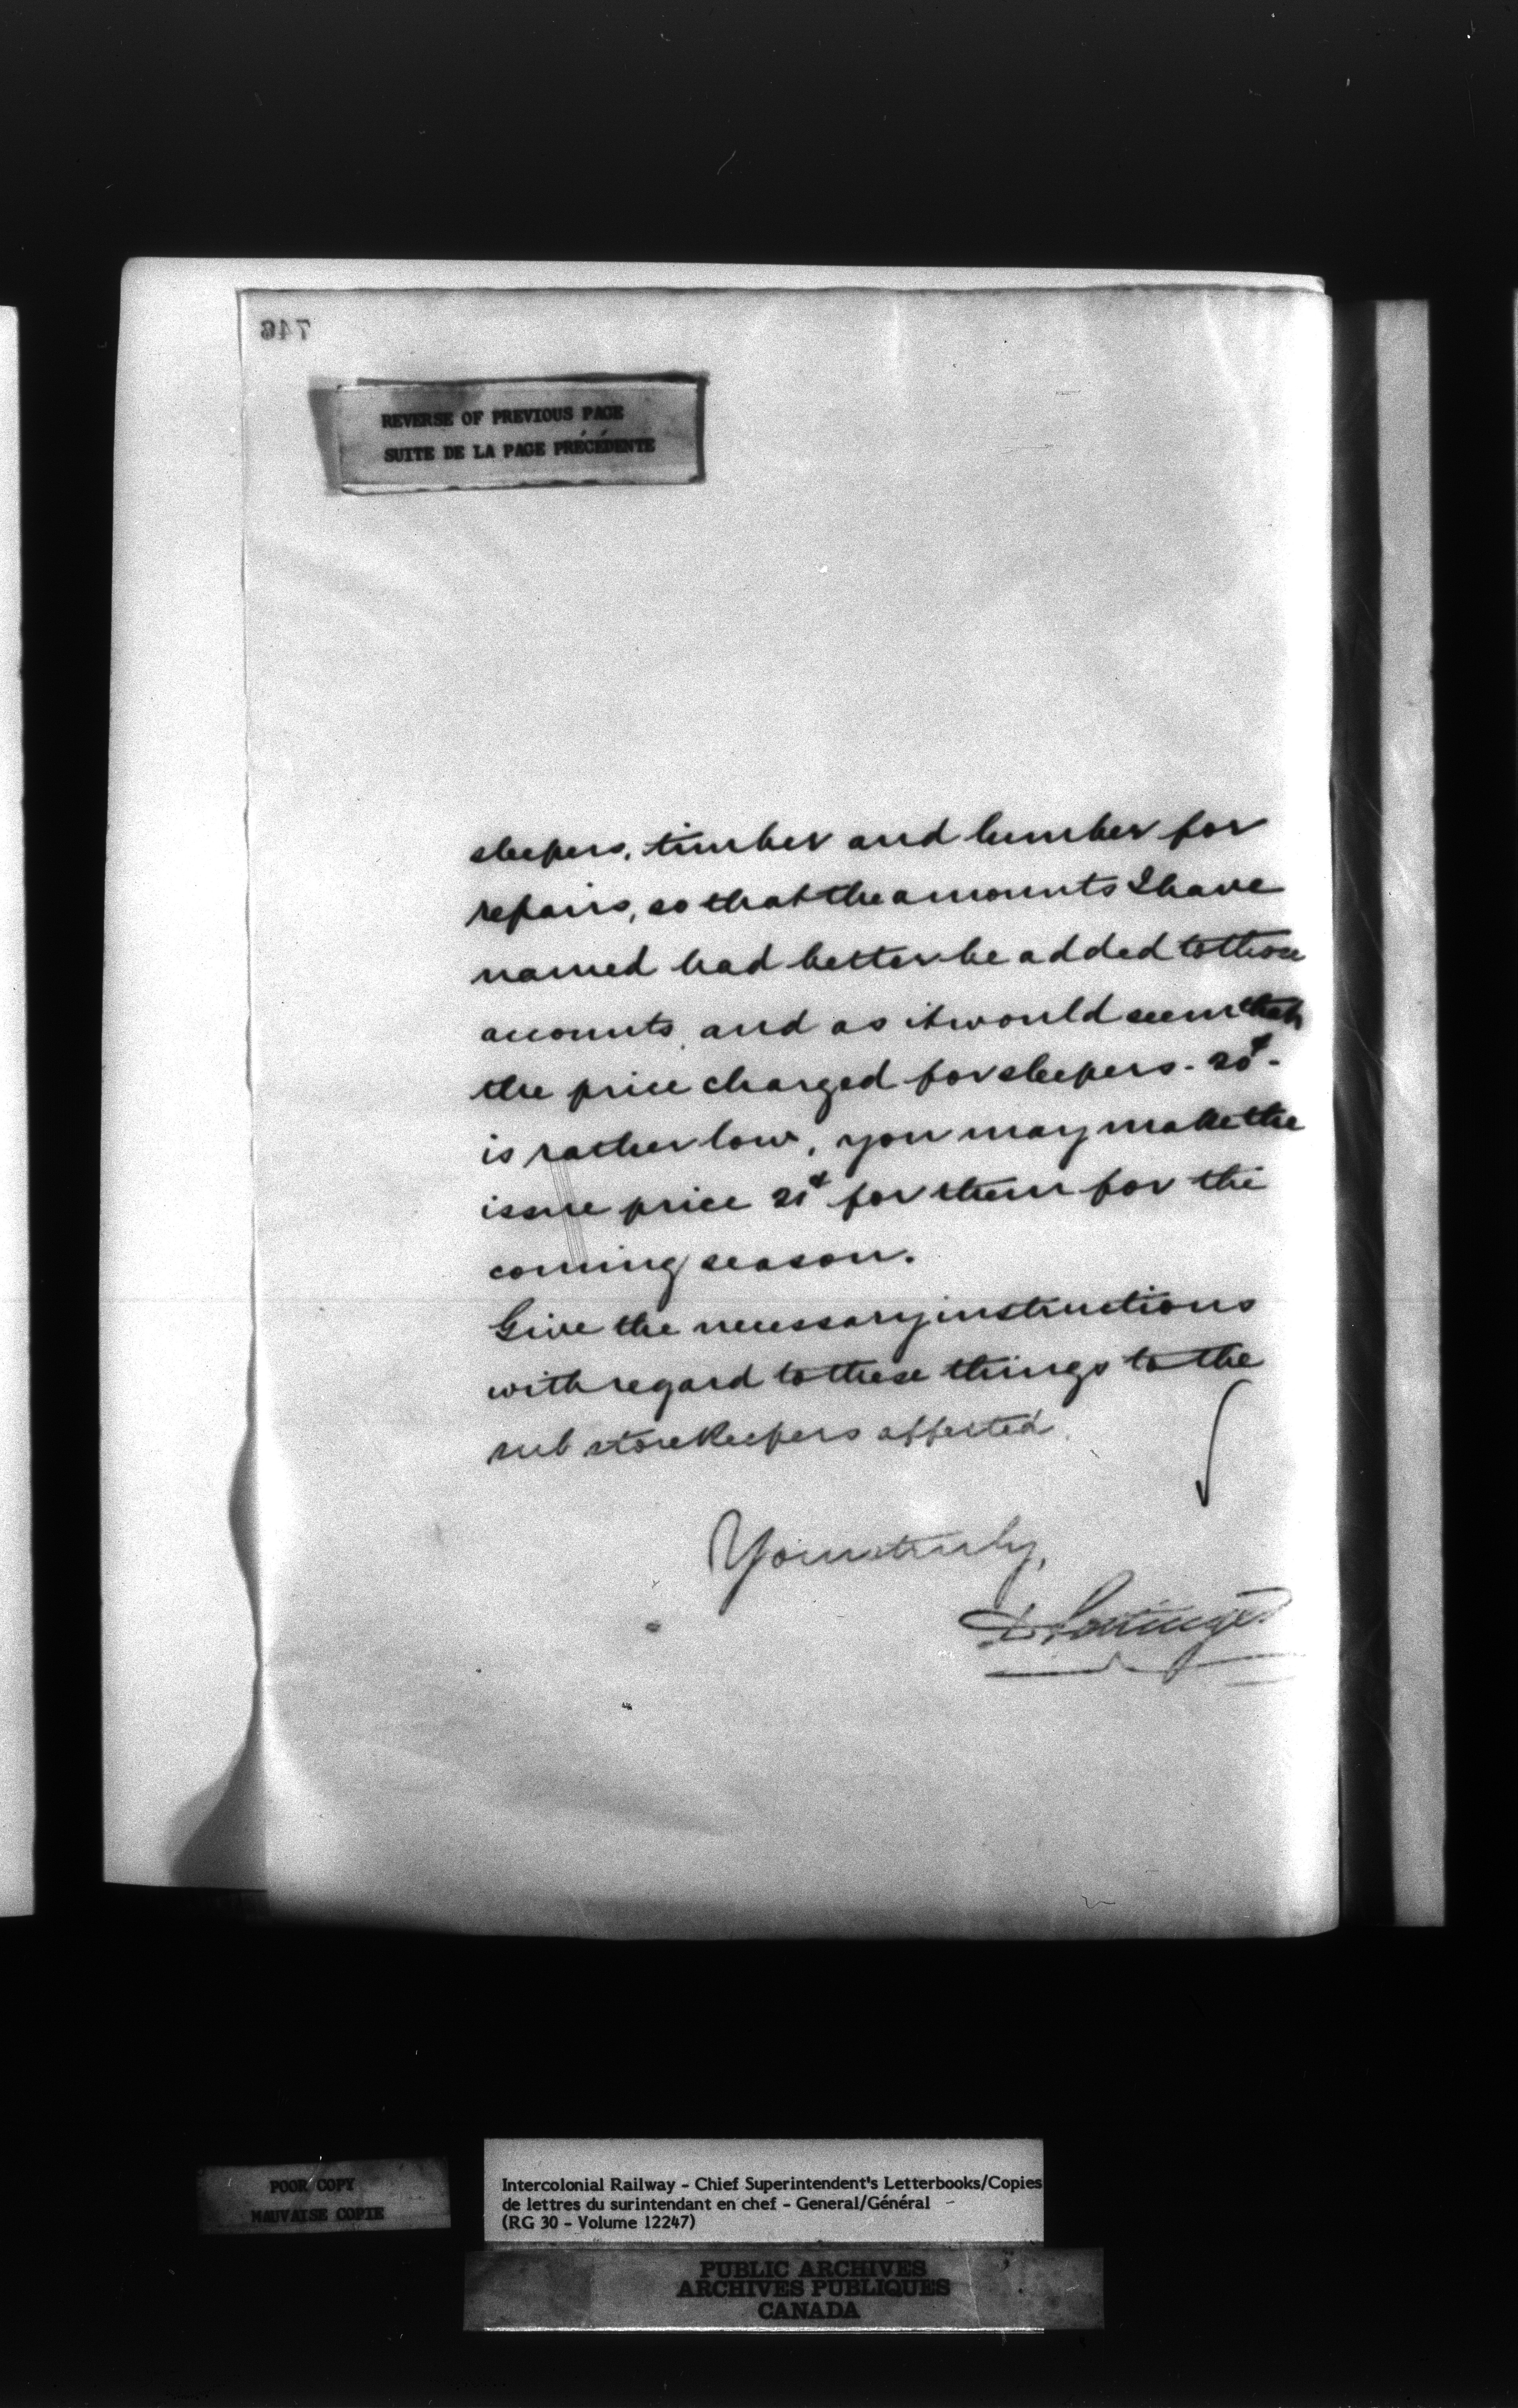 746
REVERSE OF PREVIOUS PAGE
SUITE DE LA PAGE PRÉCÉDENTE
sleepers, timber and lumber for
repairs, so that the amounts I have
named had better be added to those
accounts, and as it would seem that
the price charged for sleepers - 20¢ -
is rather low, you may make the
issue price 21¢ for them for the
coming season.
Give the necessary instructions
with regard to these things to the
sub storekeepers affected.
Yours truly,
D. Pottinger
POOR COPY
MAUVAISE COPIE
Intercolonial Railway - Chief Superintendent's Letterbooks/Copies
de lettres du surintendant en chef - General/Général -
(RG 30 - Volume 12247)
PUBLIC ARCHIVES
ARCHIVES PUBLIQUES
CANADA